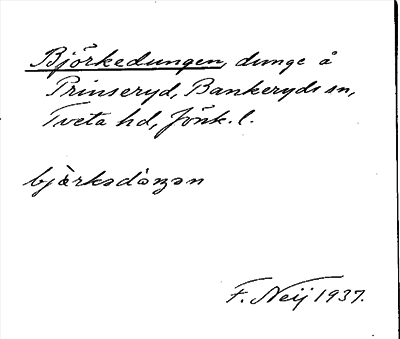 Björkedungen, dunge å
Prinseryd, Bankeryds sn,
Tveta hd, Jönk. l.
F. Neij 1937.